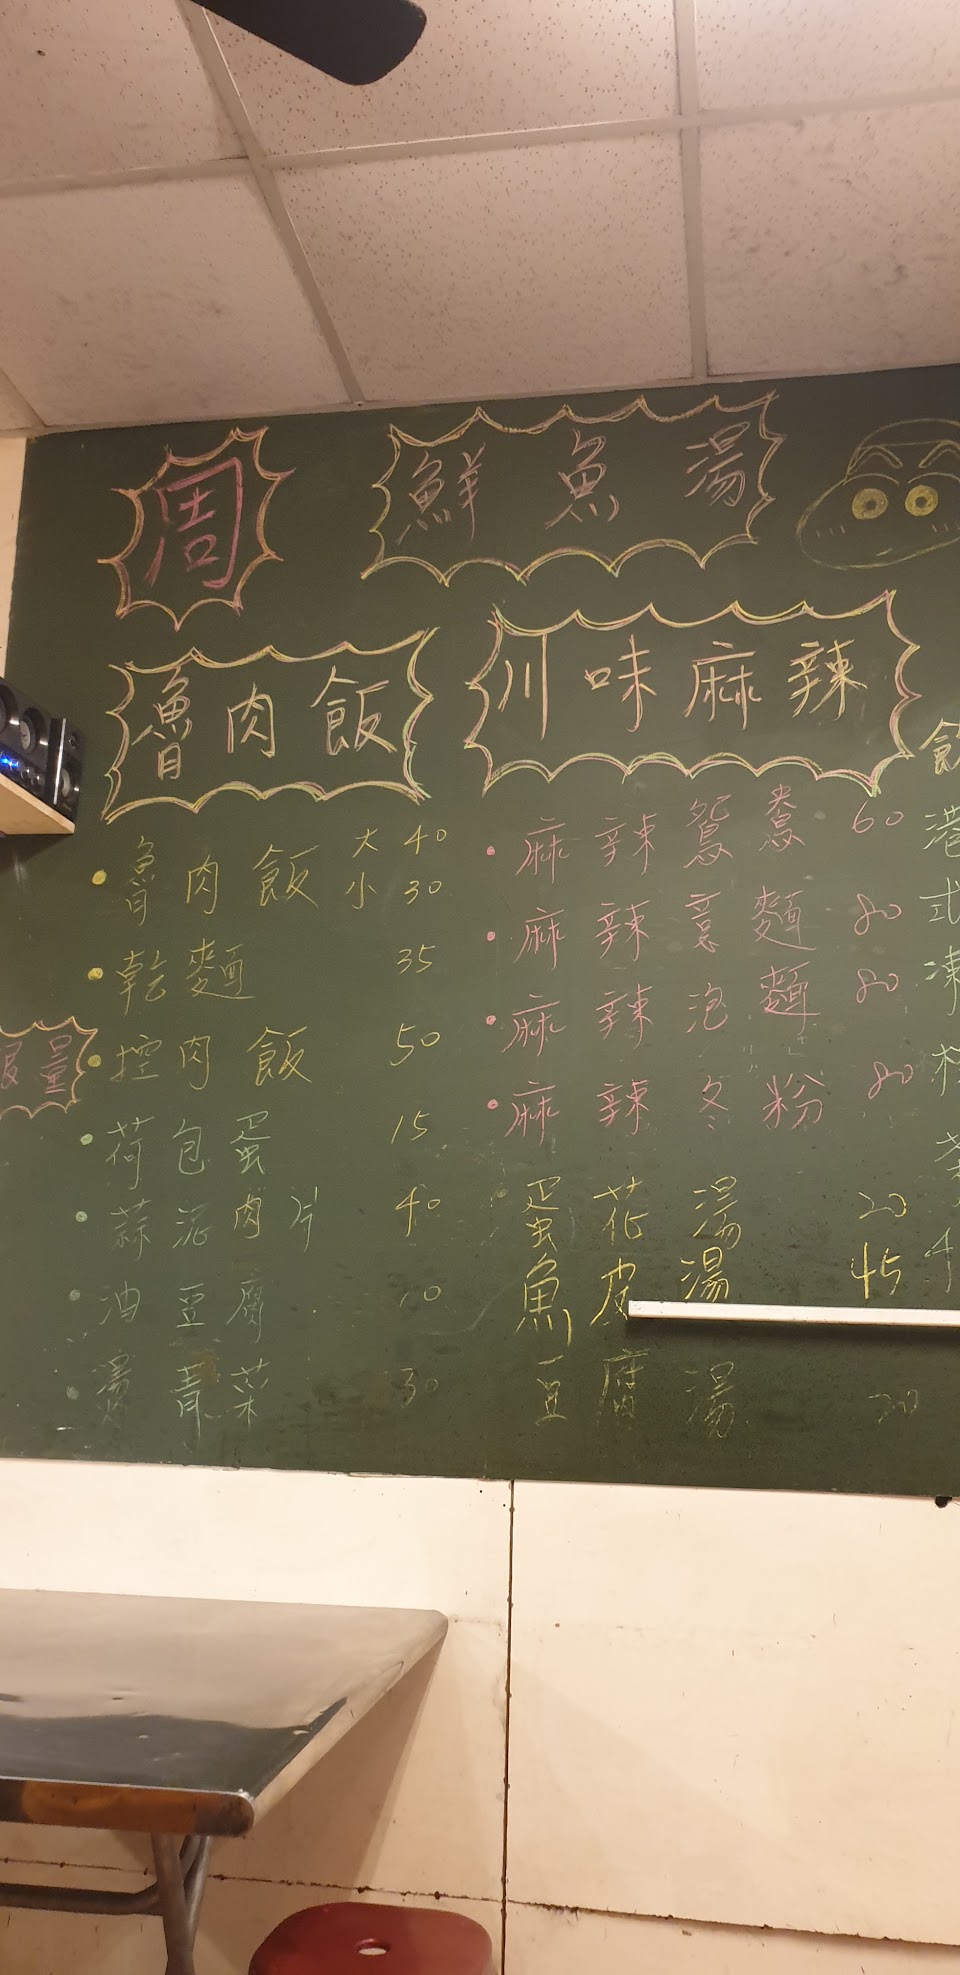 周 鮮魚湯
魯肉飯
魯肉飯 大 40
小 30
乾麵 35
控肉飯 50
荷包蛋 15
蒜泥肉片 40
油豆腐
燙青菜 30
川味麻辣
麻辣鴛鴦 60
麻辣意麵 80
麻辣泡麵 80
麻辣冬粉 80
蛋花湯 20
魚皮湯 45
豆腐湯 20
食量
飲
港
式
凍